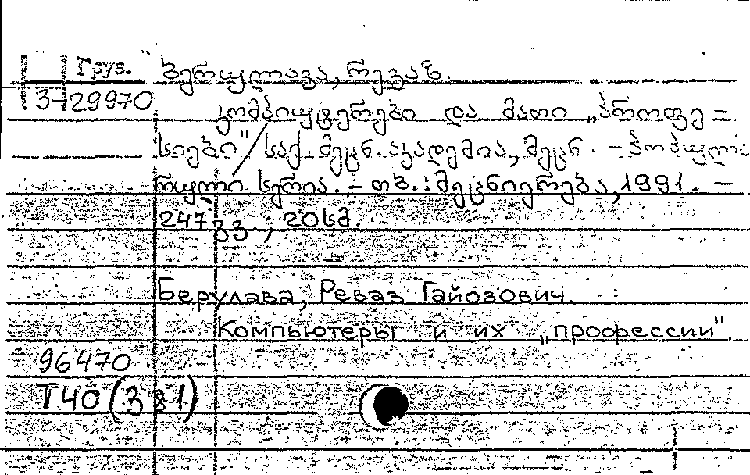 Груз. ბერულავა, რევაზ.
3-29970
კომპიუტერები და მათი „პროფე-
სიები" / საქ. მეცნ. აკადემია, მეცნ. - პოპულა
რული სერია. - თბ.: მეცნიერება, 1991. -
247 გვ., 20 სმ.
Берулава, Реваз Гайозович.
Компьютеры и их „профессии"
96470
Т40(3